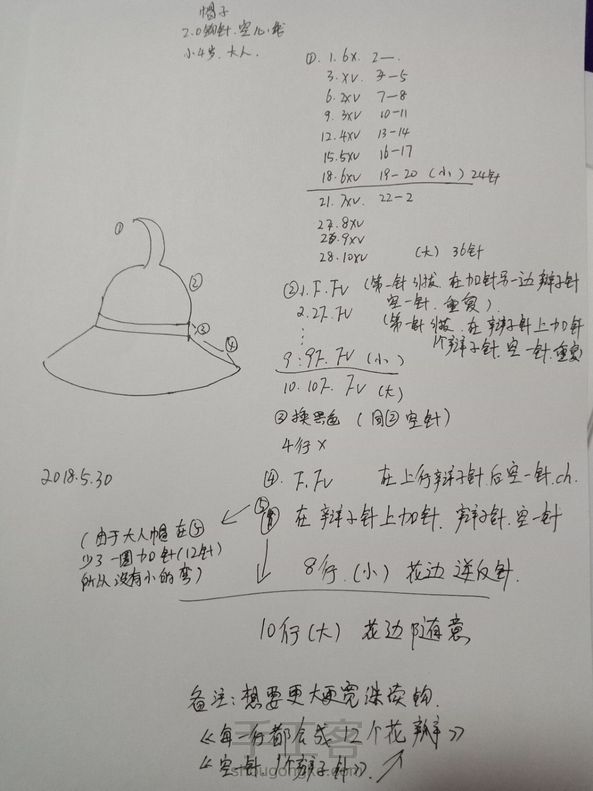 帽子
2.0钩针.空心线
小4岁.大人.
①. 1. 6X. 2—.
3. XV. 3—5
6. 2XV 7—8
9. 3XV 10—11
12. 4XV 13—14
15. 5XV 16—17
18. 6XV 19—20 (小) 24针
21. 7XV. 22—2
24. 8XV
26. 9XV.
28. 10XV (大) 36针
①
②
③
④
②1. F. FV (第一针引拔.在加针另一边辫子针
空一针.重复).
2. 2F. FV (第一针引拔.在辫子针上加针
1个辫子针.空一针.重复)
⋮
9:9F. FV (小)
10. 10F. FV (大)
③换黑色 (同②空针)
4行X
2018.5.30
④. F. FV 在上行辫子针后空一针.ch.
⑤ 在辫子针上加针.辫子针.空一针
(由于大人帽在⑤
少了一圈加针(12针)
所以没有小的弯)
8行.(小) 花边逆反针.
10行(大) 花边随意
备注:想要更大更宽继续钩.
《每一行都会成12个花瓣》
《空一针 1个辫子针》.
手工客
shougongke.com